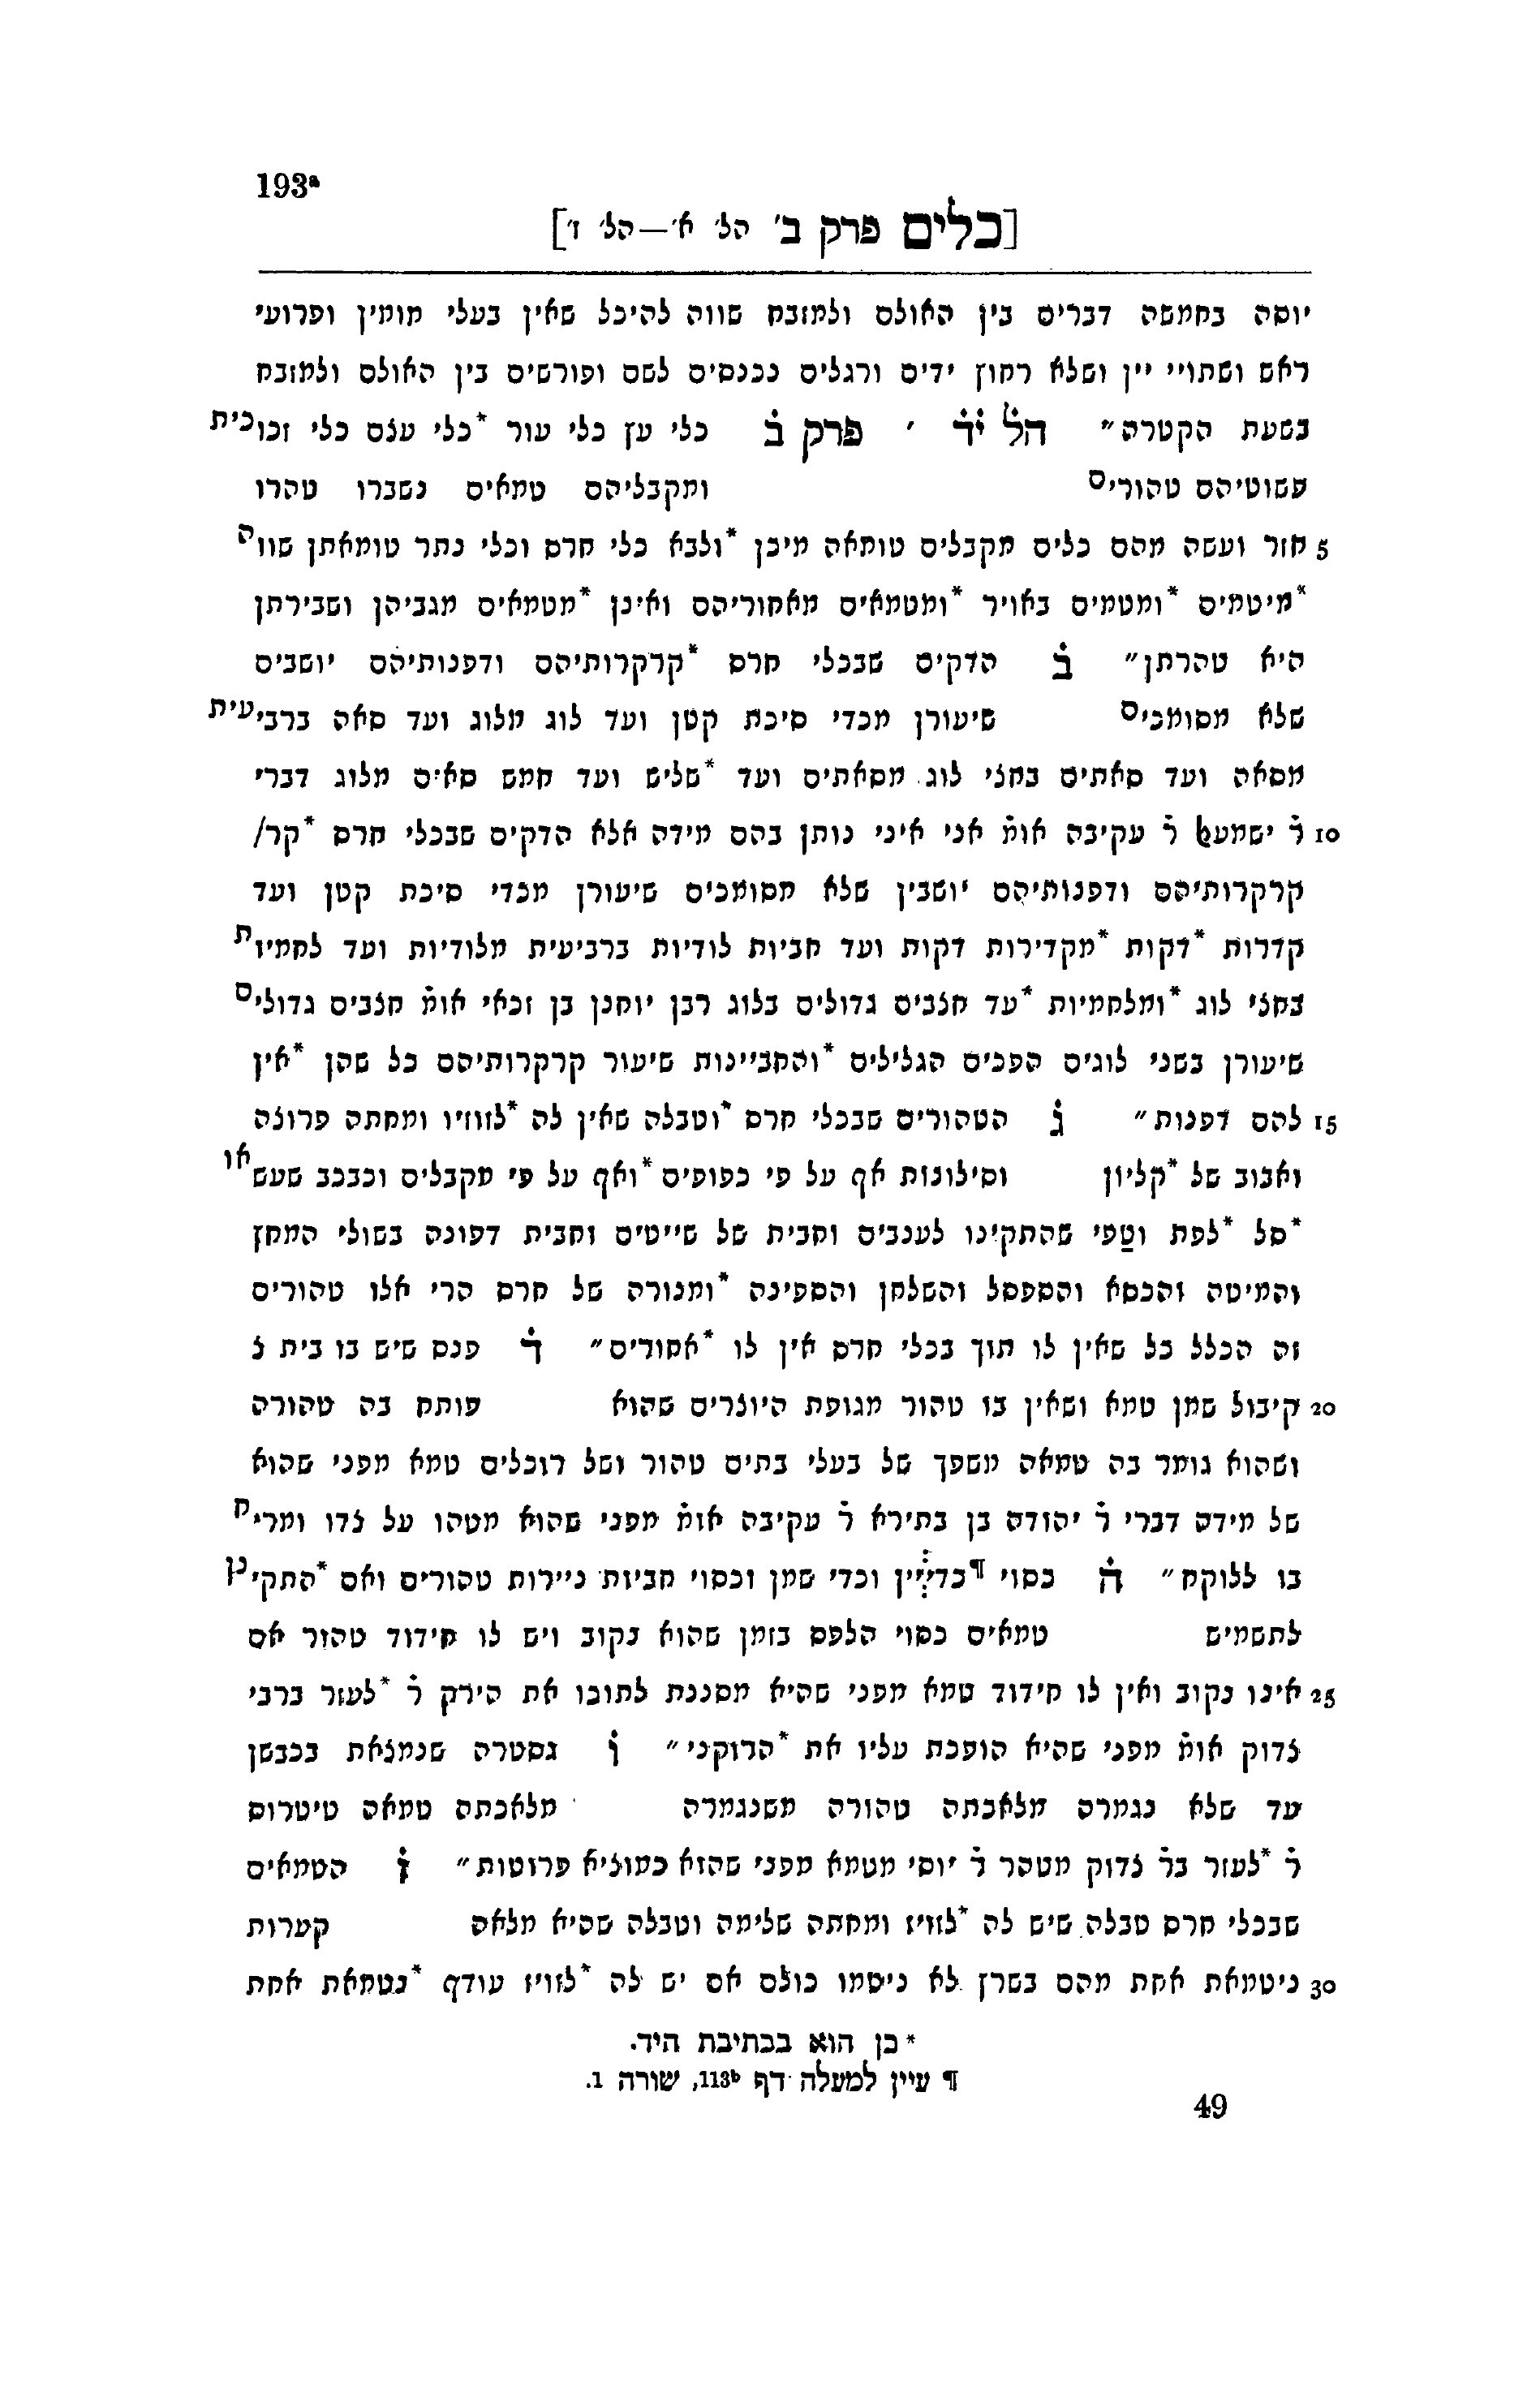 193ª
[כלים פרק ב' הל' א'—הל' ז']
יוסה בחמשה דברים בין האולם ולמזבח שווה להיכל שאין בעלי מומין ופרועי
ראש ושתויי יין ושלא רחוץ ידים ורגלים נכנסים לשם ופורשים בין האולם ולמזבח
בשעת הקטרה״ הל יד ׳ פרק ב כלי עץ כלי עור *כלי עצם כלי זכוכית
פשוטיהם טהורים ומקבליהם טמאים נשברו טהרו
5 חזר ועשה מהם כלים מקבלים טומאה מיכן *ולבא כלי חרס וכלי נתר טומאתן שווה
*מיטמים *ומטמים באויר *ומטמאים מאחוריהם ואינן *מטמאים מגביהן ושבירתן
היא טהרתן״ ב הדקים שבכלי חרס *קרקרותיהם ודפנותיהם יושבים
שלא מסומכים שיעורן מכדי סיכת קטן ועד לוג מלוג ועד סאה ברביעית
מסאה ועד סאתים בחצי לוג מסאתים ועד *שליש ועד חמש סאים מלוג דברי
10 ר ישמעאל ר עקיבה אומ אני איני נותן בהם מידה אלא הדקים שבכלי חרס *קר/
קרקרותיהם ודפנותיהם יושבין שלא מסומכים שיעורן מכדי סיכת קטן ועד
קדרות *דקות *מקדירות דקות ועד חביות לודיות ברביעית מלודיות ועד לחמיות
בחצי לוג *ומלחמיות *עד חצבים גדולים בלוג רבן יוחנן בן זכאי אומ חצבים גדולים
שיעורן בשני לוגים הפכים הגלילים *והחביינות שיעור קרקרותיהם כל שהן *אין
15 להם דפנות״ ג הטהורים שבכלי חרס *וטבלה שאין לה *לזוזיו ומחתה פרוצה
ואבוב של *קליון וסילונות אף על פי כפופים *ואף על פי מקבלים וכבכב שעשאו
*סל *לפת וטפי שהתקינו לענבים וחבית של שייטים וחבית דפונה בשולי המחץ
והמיטה והכסא והספסל והשלחן והספינה *ומנורה של חרס הרי אלו טהורים
זה הכלל כל שאין לו תוך בכלי חרס אין לו *אחורים״ ד פנס שיש בו בית נ
20 קיבול שמן טמא ושאין בו טהור מגופת היוצרים שהוא פותח בה טהורה
ושהוא גומר בה טמאה משפך של בעלי בתים טהור ושל רוכלים טמא מפני שהוא
של מידה דברי ר יהודה בן בתירא ר עקיבה אומ מפני שהוא מטהו על צדו ומריח
בו ללוקח״ ה כסוי ¶כדיין וכדי שמן וכסוי חביות ניירות טהורים ואם *התקינן
לתשמיש טמאים כסוי הלפס בזמן שהוא נקוב ויש לו חידוד טהור אם
25 אינו נקוב ואין לו חידוד טמא מפני שהיא מסננת לתוכו את הירק ר *לעזר ברבי
צדוק אומ מפני שהיא הופכת עליו את *הרוקני״ ו גסטרה שנמצאת בכבשן
עד שלא נגמרה מלאכתה טהורה משנגמרה מלאכתה טמאה טיטרוס
ר *לעזר בר צדוק מטהר ר יוסי מטמא מפני שהוא כמוציא פרוטות״ ז הטמאים
שבכלי חרס טבלה שיש לה *לזיז ומחתה שלימה וטבלה שהיא מלאה קערות
30 ניטמאת אחת מהם בשרץ לא ניטמו כולם אם יש לה *לזויז עודף *נטמאת אחת
* כן הוא בכתיבת היד.
¶ עיין למעלה דף 113b, שורה 1.
49